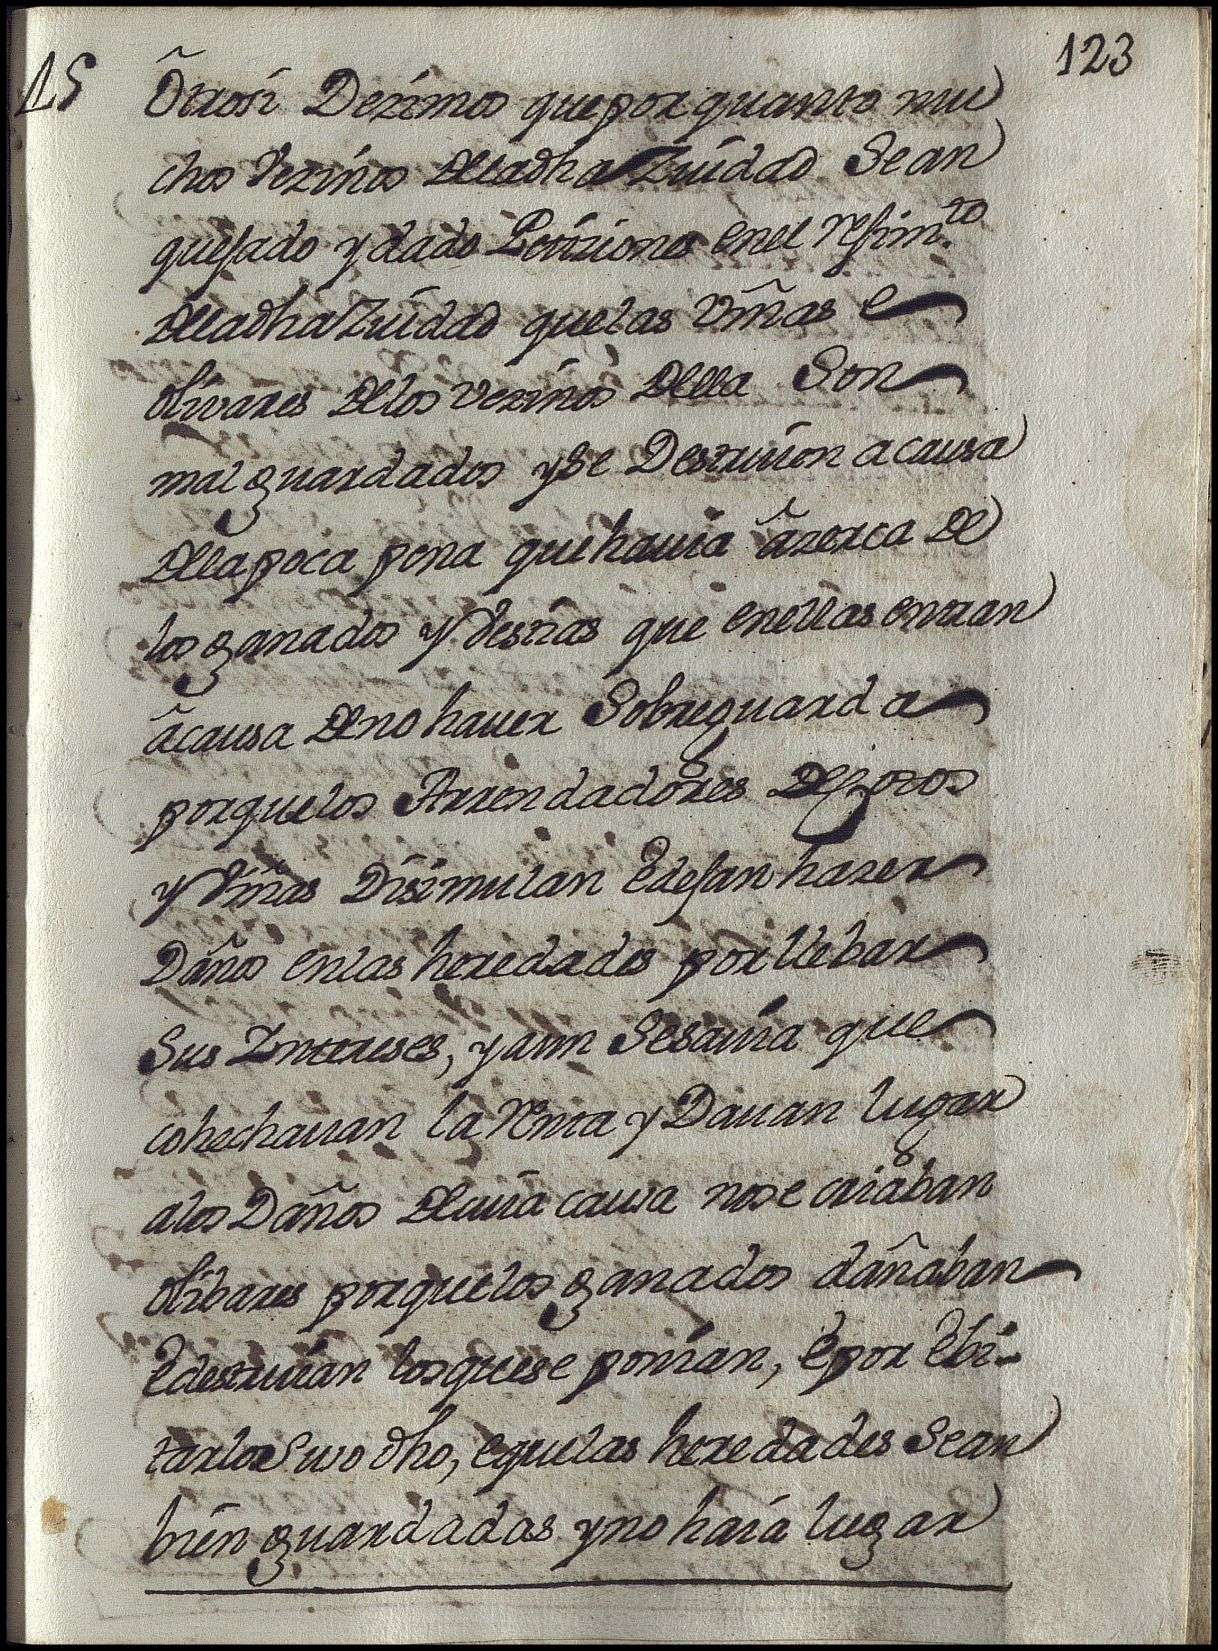 15
123
Otrosi Dezimos que por quanto mu
chos Vezinos dela dha Ziudad Sean
quejado y dado Petiziones en el rejim.to
dela dha Ziudad que las Viñas e
olivares de los Vezinos della Son
mal guardados y Se Destruion a causa
dela poca pena que hauia azerca de
los ganados y Vestias que en ellas entran
a causa de no hauer Sobreguarda
porque los Arrendadores de cotos
y Viñas Disimulan E dejan hazer
Daños en las heredades por llebar
Sus Intereses, y aun Se sauia que
cohechauan la renta y Dauan lugar
alos Daños de cuia causa no se criaban
olibares porque los ganados dañaban
E destruian los que se ponian, e por Ebi-
tar lo Suso dho, e que las heredades Sean
bien guardadas y no haia lugar